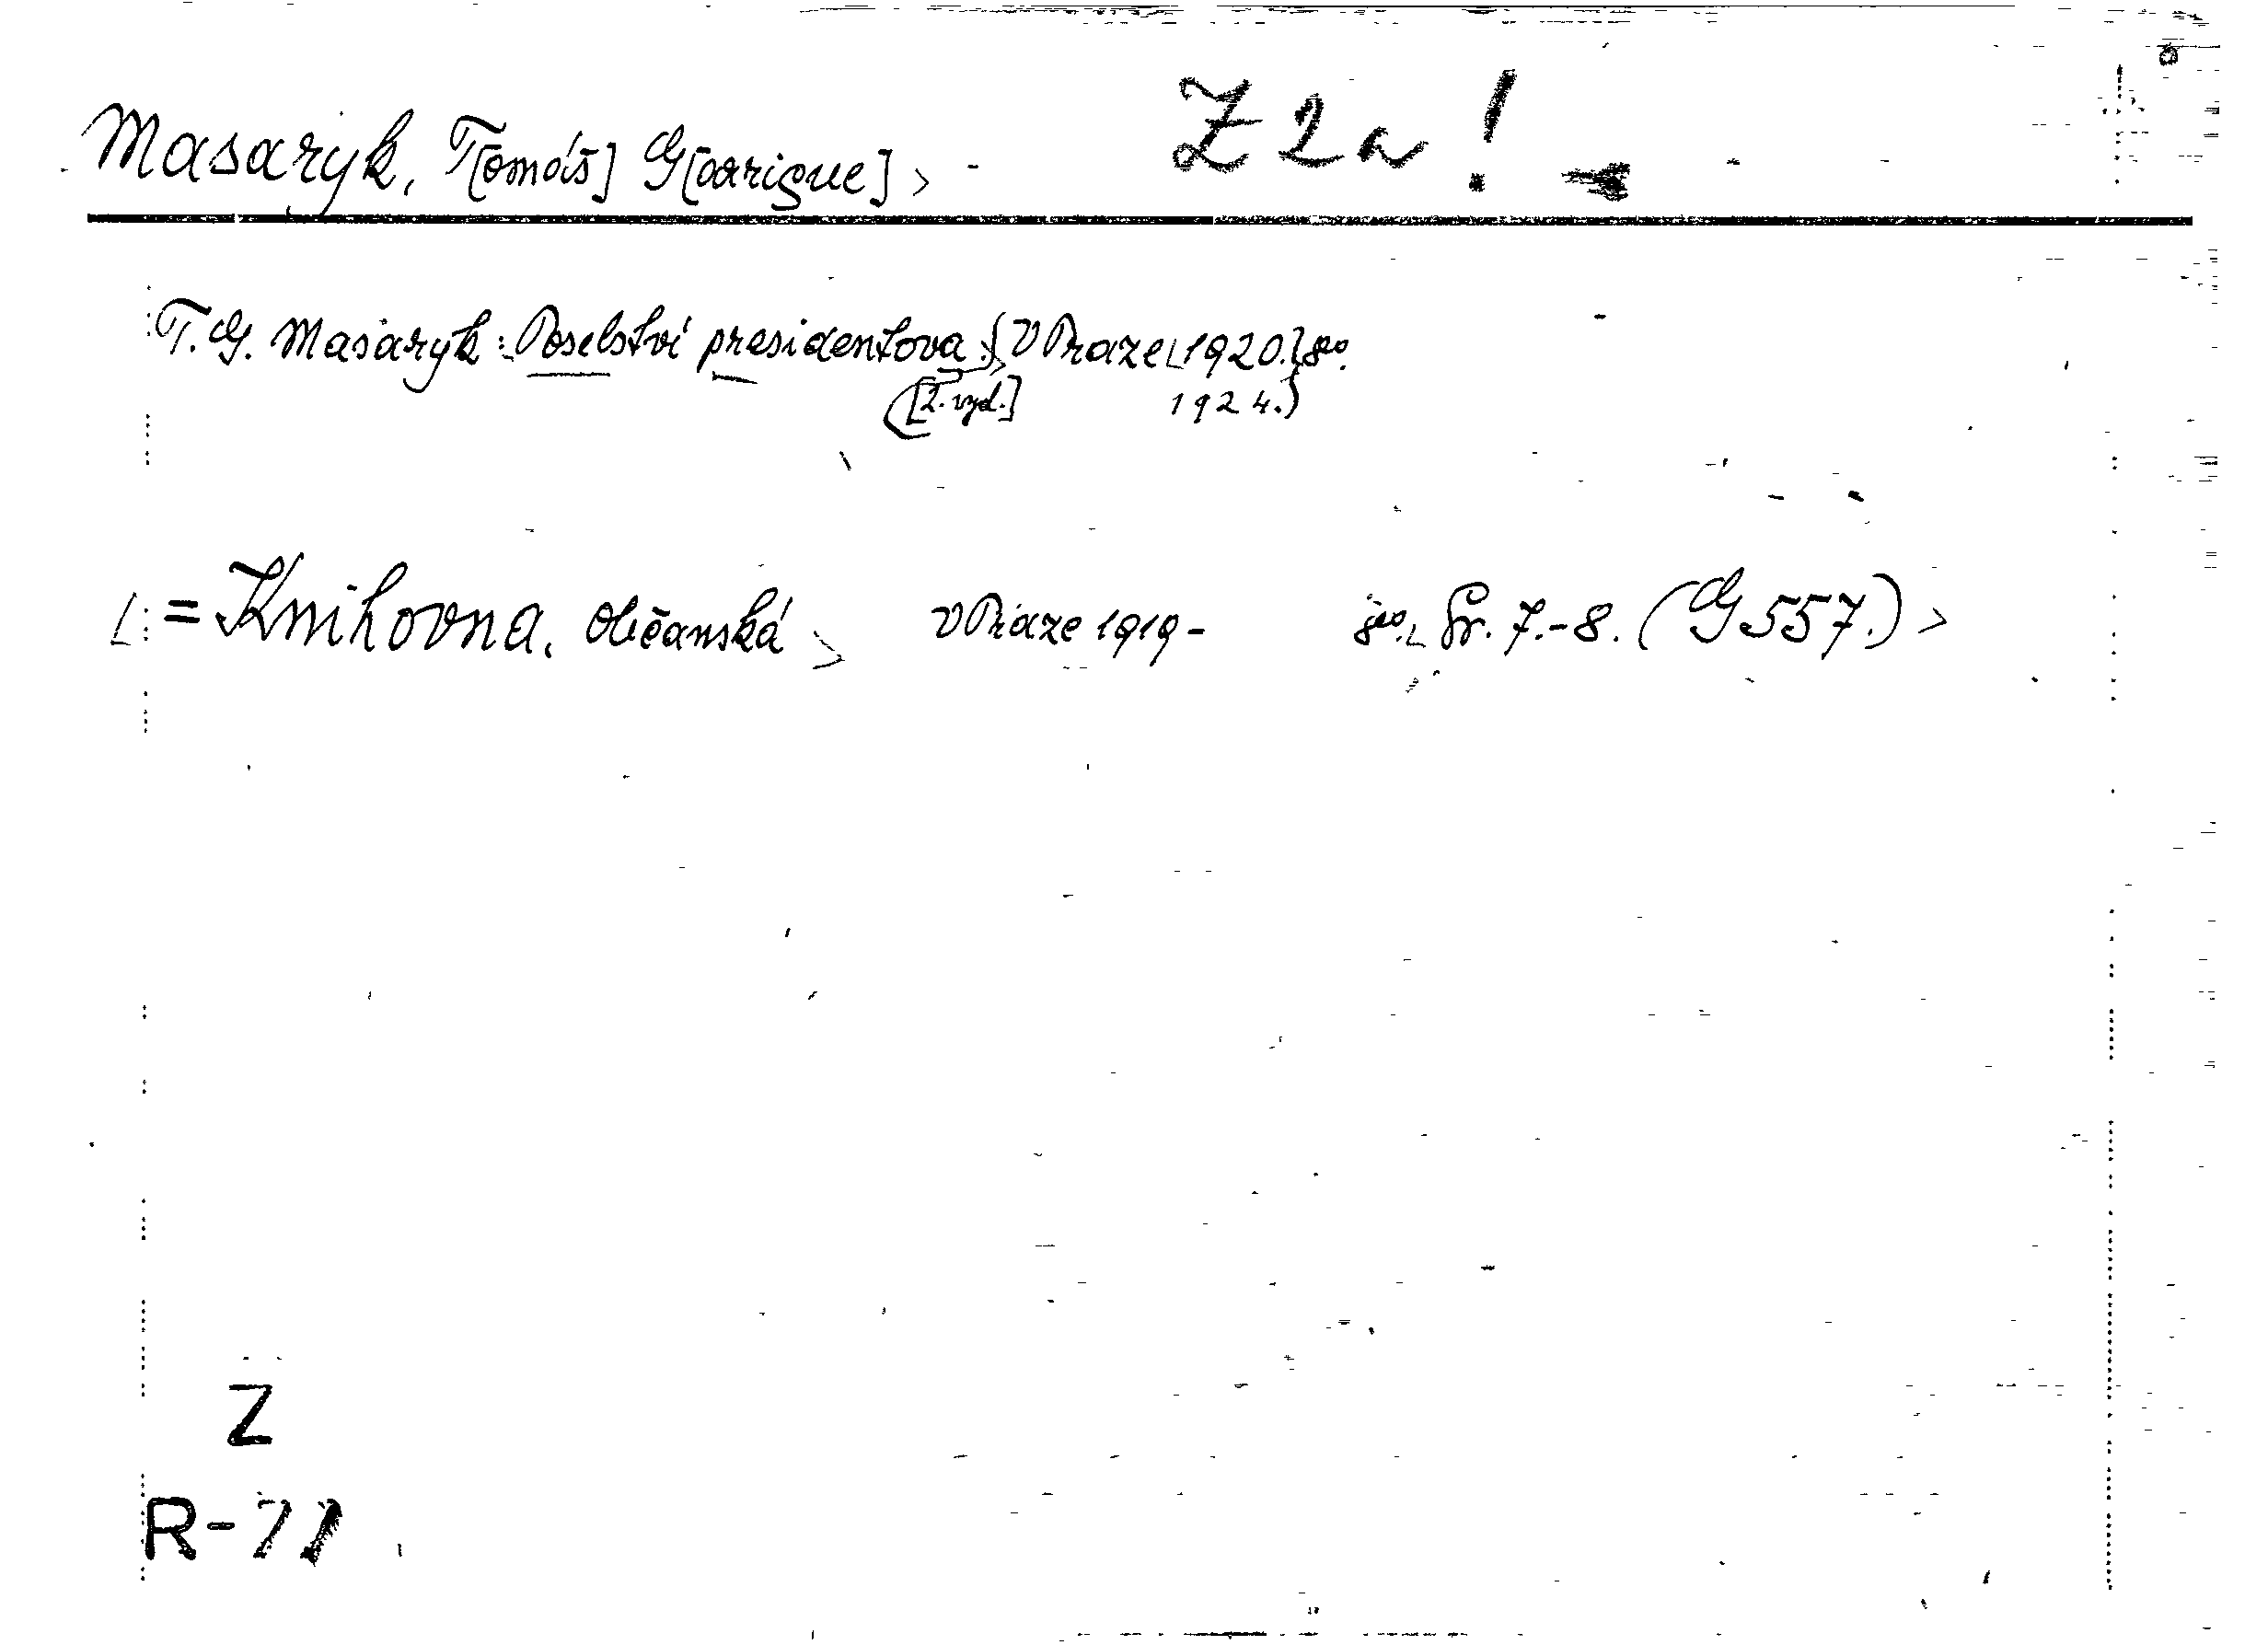 Masaryk, T[omáš] G[arigue] Z2a!
T. G. Masaryk: Poselství presidentova. {V Praze 1920.} 8°.
([2. vyd.] 1924.)
= Knihovna, Občanská V Praze 1919- 8°. Sv. 7.-8. (G 557.)
Z
R-71